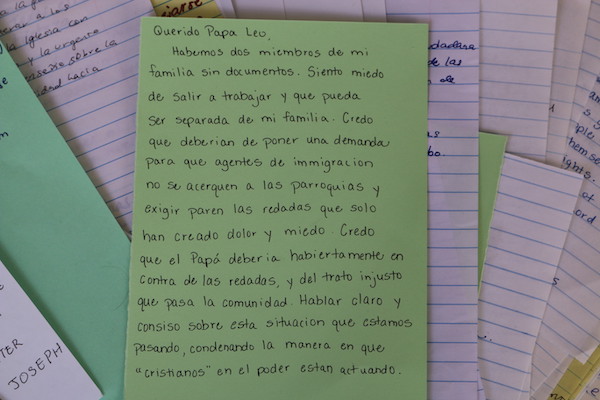 Querido Papa Leo,
Habemos dos miembros de mi
familia sin documentos. Siento miedo
de salir a trabajar y que pueda
ser separada de mi familia. Credo
que deberian de poner una demanda
para que agentes de immigracion
no se acerquen a las parroquias y
exigir paren las redadas que solo
han creado dolor y miedo. Credo
que el Papá deberia habiertamente en
contra de las redadas, y del trato injusto
que pasa la comunidad. Hablar claro y
consiso sobre esta situacion que estamos
pasando, condenando la manera en que
"cristianos" en el poder estan actuando.
la Iglesia con
y la urgente
sobre la
de las
de
JOSEPH